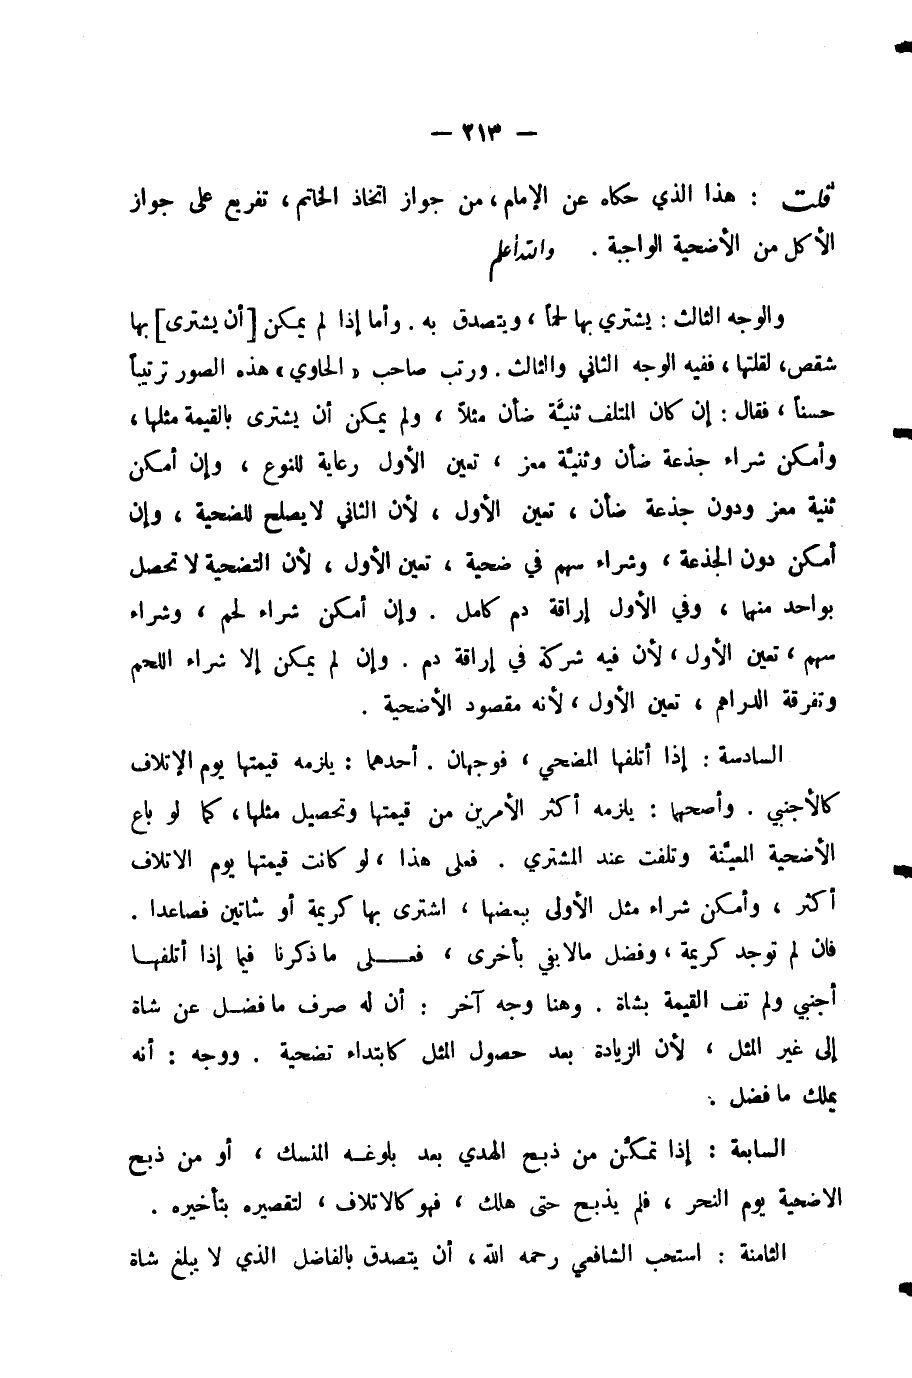 — ٢١٣ —
قلت : هذا الذي حكاه عن الإمام ، من جواز اتخاذ الخاتم ، تفريع على جواز
الأكل من الأضحية الواجبة . والله أعلم
والوجه الثالث : يشتري بها لحماً ، ويتصدق به . وأما إذا لم يمكن [ أن يشترى ] بها
شقص ، لقلتها ، ففيه الوجه الثاني والثالث . ورتب صاحب « الحاوي » هذه الصور ترتيباً
حسناً ، فقال : إن كان المتلف ثنيَّة ضأن مثلاً ، ولم يمكن أن يشترى بالقيمة مثلها ،
وأمكن شراء جذعة ضأن وثنيَّة معز ، تعين الأول رعاية للنوع ، وإن أمكن
ثنية معز ودون جذعة ضأن ، تعين الأول ، لأن الثاني لا يصلح للضحية ، وإن
أمكن دون الجذعة ، وشراء سهم في ضحية ، تعين الأول ، لأن التضحية لا تحصل
بواحد منها ، وفي الأول إراقة دم كامل . وإن أمكن شراء لحم ، وشراء
سهم ، تعين الأول ، لأن فيه شركة في إراقة دم . وإن لم يمكن إلا شراء اللحم
وتفرقة الدراهم ، تعين الأول ، لأنه مقصود الأضحية .
السادسة : إذا أتلفها المضحي ، فوجهان . أحدهما : يلزمه قيمتها يوم الإتلاف
كالأجنبي . وأصحها : يلزمه أكثر الأمرين من قيمتها وتحصيل مثلها ، كما لو باع
الأضحية المعيَّنة وتلفت عند المشتري . فعلى هذا ، لو كانت قيمتها يوم الاتلاف
أكثر ، وأمكن شراء مثل الأولى ببعضها ، اشترى بها كريمة أو شاتين فصاعدا .
فان لم توجد كريمة ، وفضل مالا يفي بأخرى ، فعـــلى ما ذكرنا فيما إذا أتلفهـا
أجنبي ولم تف القيمة بشاة . وهنا وجه آخر : أن له صرف ما فضل عن شاة
إلى غير المثل ، لأن الزيادة بعد حصول المثل كابتداء تضحية . ووجه : أنه
يملك ما فضل .
السابعة : إذا تمكَّن من ذبح الهدي بعد بلوغه المنسك ، أو من ذبح
الاضحية يوم النحر ، فلم يذبح حتى هلك ، فهو كالاتلاف ، لتقصيره بتأخيره .
الثامنة : استحب الشافعي رحمه الله ، أن يتصدق بالفاضل الذي لا يبلغ شاة